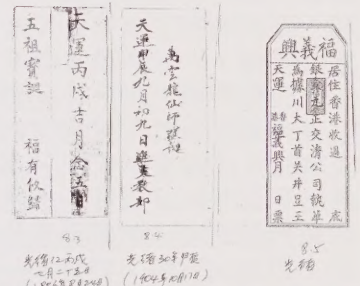 天運丙戌吉月念五
五祖寶訓 福有攸歸
83
光緒12丙戌
七月二十五日
(1886年8月24日)
萬雲龍仙師
天運甲辰九月初九日進
84
光緒30年甲辰
(1904年10月17日)
福義興
居住香港收過 底
銀 正交清公司統單
為據川大丁首关井昱王
天運 香港福義興月 日票
85
光緒